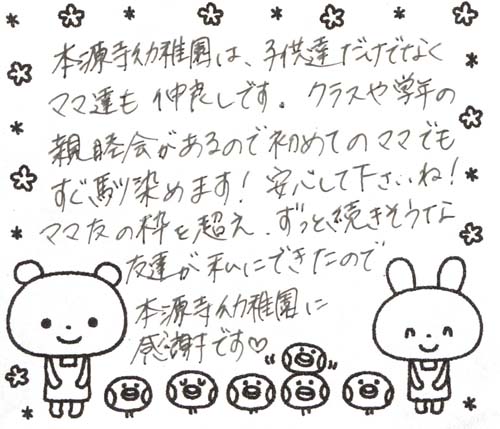 本源寺幼稚園は、子供達だけでなく
ママ達も仲良しです。クラスや学年の
親睦会があるので初めてのママでも
すぐ馴染めます!安心して下さいね!
ママ友の枠を超え、ずっと続きそうな
友達が私にできたので
本源寺幼稚園に
感謝です♡